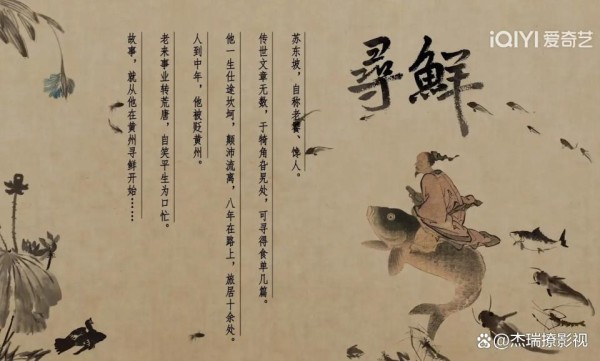 iQIYI 爱奇艺
尋鮮
苏东坡，自称老饕、馋人。
传世文章无数，于犄角旮旯处，可寻得食单几篇。
他一生仕途坎坷，颠沛流离，八年在路上，旅居十余处。
人到中年，他被贬黄州。
老来事业转荒唐，自笑平生为口忙。
故事，就从他在黄州寻鲜开始……
知乎 @杰瑞撩影视